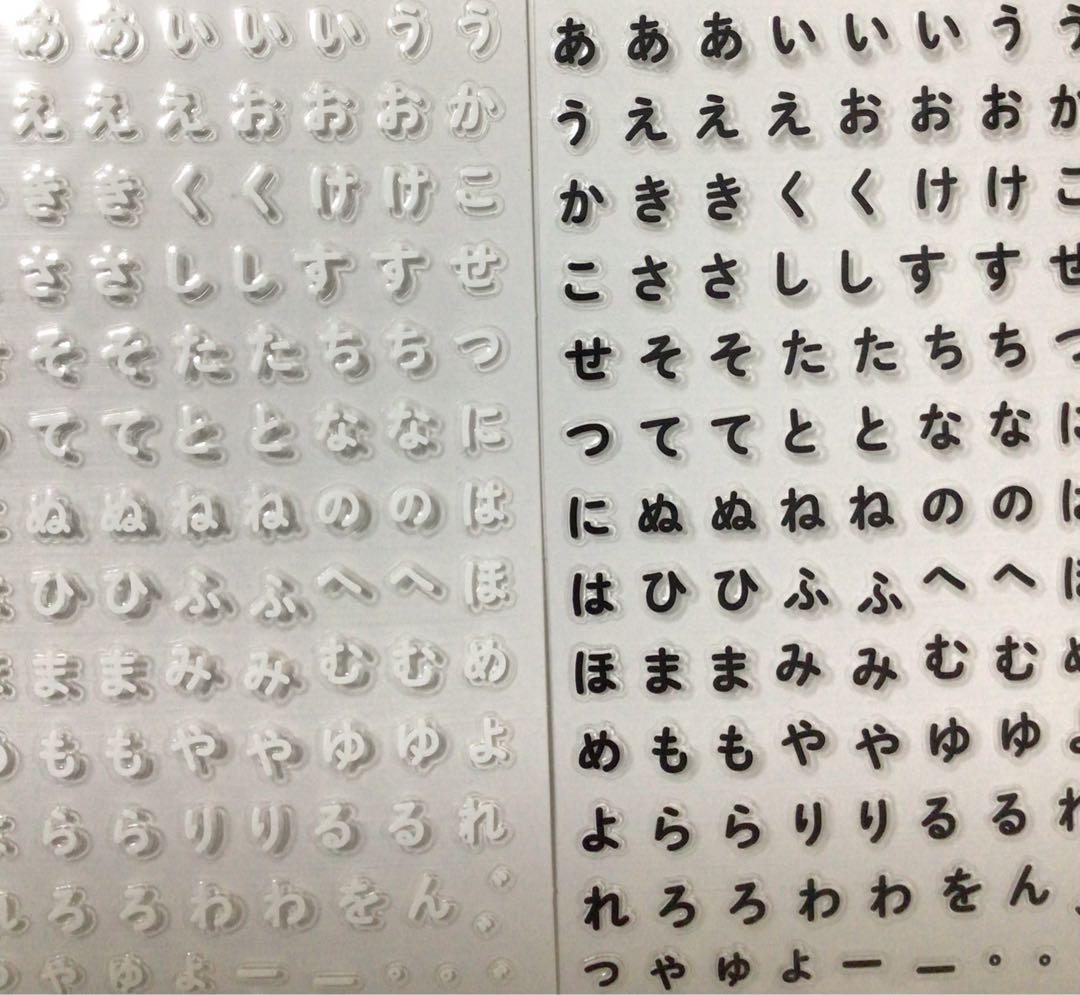 あ あ い い い う う
え え え お お お か
き き く く け け こ
さ さ し し す す せ
そ そ た た ち ち つ
て て と と な な に
ぬ ぬ ね ね の の は
ひ ひ ふ ふ へ へ ほ
ま ま み み む む め
も も や や ゆ ゆ よ
ら ら り り る る れ
ろ ろ わ わ を ん ゛
ゃ ゅ ょ ー ー ゜ ゜ ゛
あ あ あ い い い う う
う え え え お お お か
か き き く く け け こ
こ さ さ し し す す せ
せ そ そ た た ち ち つ
つ て て と と な な に
に ぬ ぬ ね ね の の は
は ひ ひ ふ ふ へ へ ほ
ほ ま ま み み む む め
め も も や や ゆ ゆ よ
よ ら ら り り る る れ
れ ろ ろ わ わ を ん
っ ゃ ゅ ょ ー ー ゜ ゜